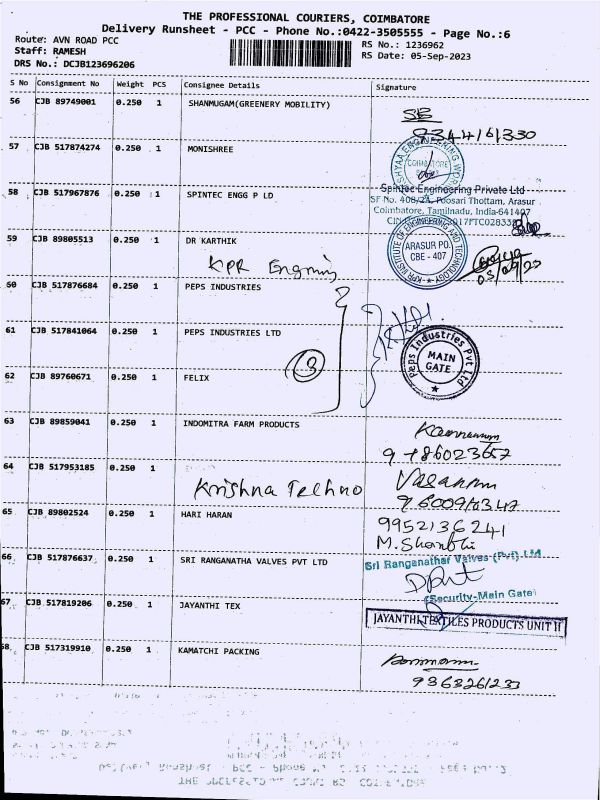 THE PROFESSIONAL COURIERS, COIMBATORE
Delivery Runsheet - PCC - Phone No.:0422-3505555 - Page No.:6
Route: AVN ROAD PCC
RS No.: 1236962
Staff: RAMESH
RS Date: 05-Sep-2023
DRS No.: DCJB123696206
S No Consignment No Weight PCS Consignee Details Signature
56 CJB 89749001 0.250 1 SHANMUGAM(GREENERY MOBILITY)
57 CJB 517874274 0.250 1 MONISHREE
COIMBATORE
58 CJB 517967876 0.250 1 SPINTEC ENGG P LD
Spintec Engineering Private Ltd
SF No. 408/2A, Poosari Thottam, Arasur
Coimbatore, Tamilnadu, India-641407
59 CJB 89805513 0.250 1 DR KARTHIK
KPR
KPR INSTITUTE OF ENGINEERING AND TECHNOLOGY
ARASUR PO.
CBE - 407
60 CJB 517876684 0.250 1 PEPS INDUSTRIES
61 CJB 517841064 0.250 1 PEPS INDUSTRIES LTD
3
Peps Industries Pvt Ltd
MAIN
GATE
62 CJB 89760671 0.250 1 FELIX
63 CJB 89859041 0.250 1 INDOMITRA FARM PRODUCTS
64 CJB 517953185 0.250 1
Krishna Techno
65 CJB 89802524 0.250 1 HARI HARAN
9952136241
66 CJB 517876637 0.250 1 SRI RANGANATHA VALVES PVT LTD
Sri Ranganathar Valves (Pvt) Ltd
(Security-Main Gate)
67 CJB 517819206 0.250 1 JAYANTHI TEX
JAYANTHI TEXTILES PRODUCTS UNIT II
68 CJB 517319910 0.250 1 KAMATCHI PACKING